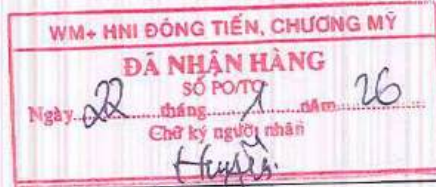 WM+ HNI ĐÔNG TIẾN, CHƯƠNG MỸ
ĐÃ NHẬN HÀNG
SỐ PO/TO
Ngày 22 tháng 1 năm 26
Chữ ký người nhận
Huyền